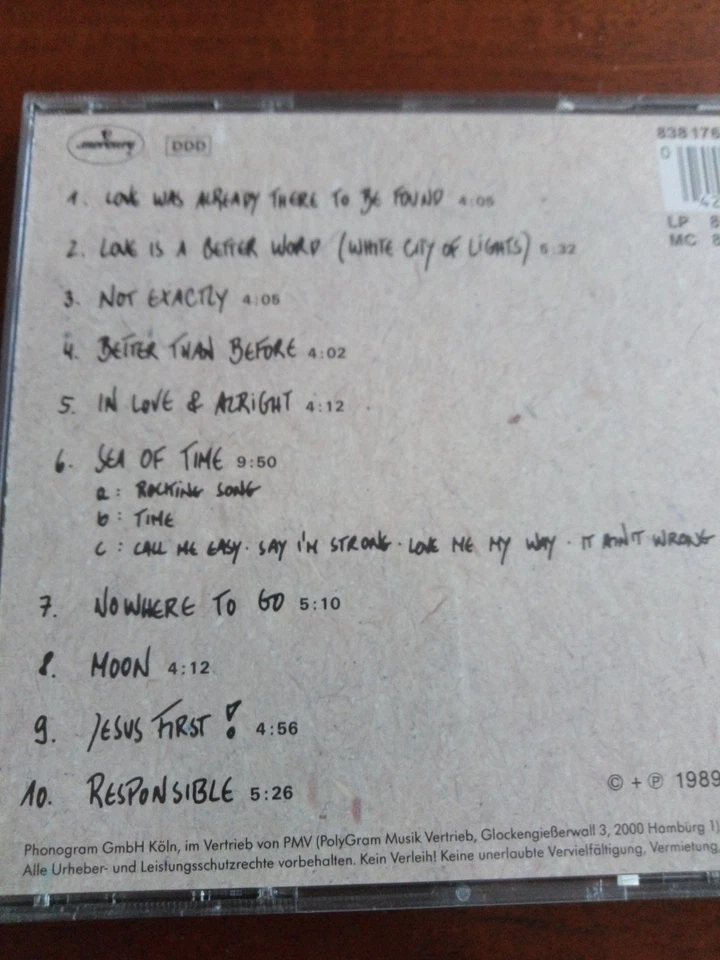 mercury DDD 838 176
0 42
LP 8
MC 8
1. LOVE WAS ALREADY THERE TO BE FOUND 4:05
2. LOVE IS A BETTER WORD (WHITE CITY OF LIGHTS) 5:32
3. NOT EXACTLY 4:05
4. BETTER THAN BEFORE 4:02
5. IN LOVE & ALRIGHT 4:12
6. SEA OF TIME 9:50
a: ROCKING SONG
b: TIME
c: CALL ME EASY · SAY I'M STRONG · LOVE ME MY WAY · IT AIN'T WRONG
7. NOWHERE TO GO 5:10
8. MOON 4:12
9. JESUS FIRST! 4:56
10. RESPONSIBLE 5:26
© + ℗ 1989
Phonogram GmbH Köln, im Vertrieb von PMV (PolyGram Musik Vertrieb, Glockengießerwall 3, 2000 Hamburg 1)
Alle Urheber- und Leistungsschutzrechte vorbehalten. Kein Verleih! Keine unerlaubte Vervielfältigung, Vermietung,